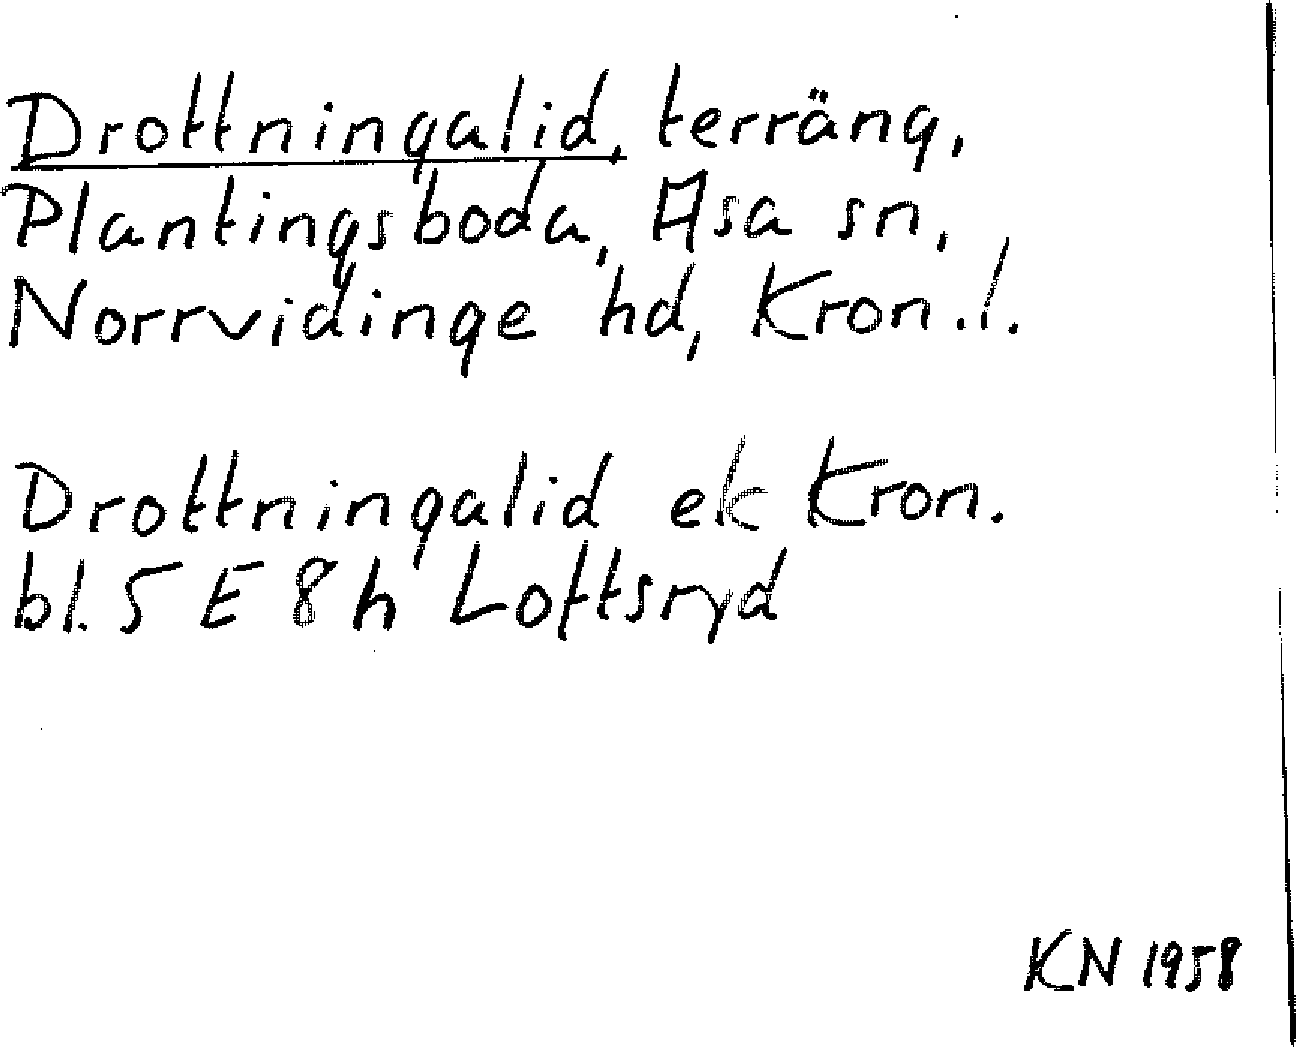 Drottningalid, terräng,
Plantingsboda, Asa sn,
Norrvidinge hd, Kron.l.
Drottningalid ek Kron.
bl. 5 E 8 h Loftsryd
KN 1958